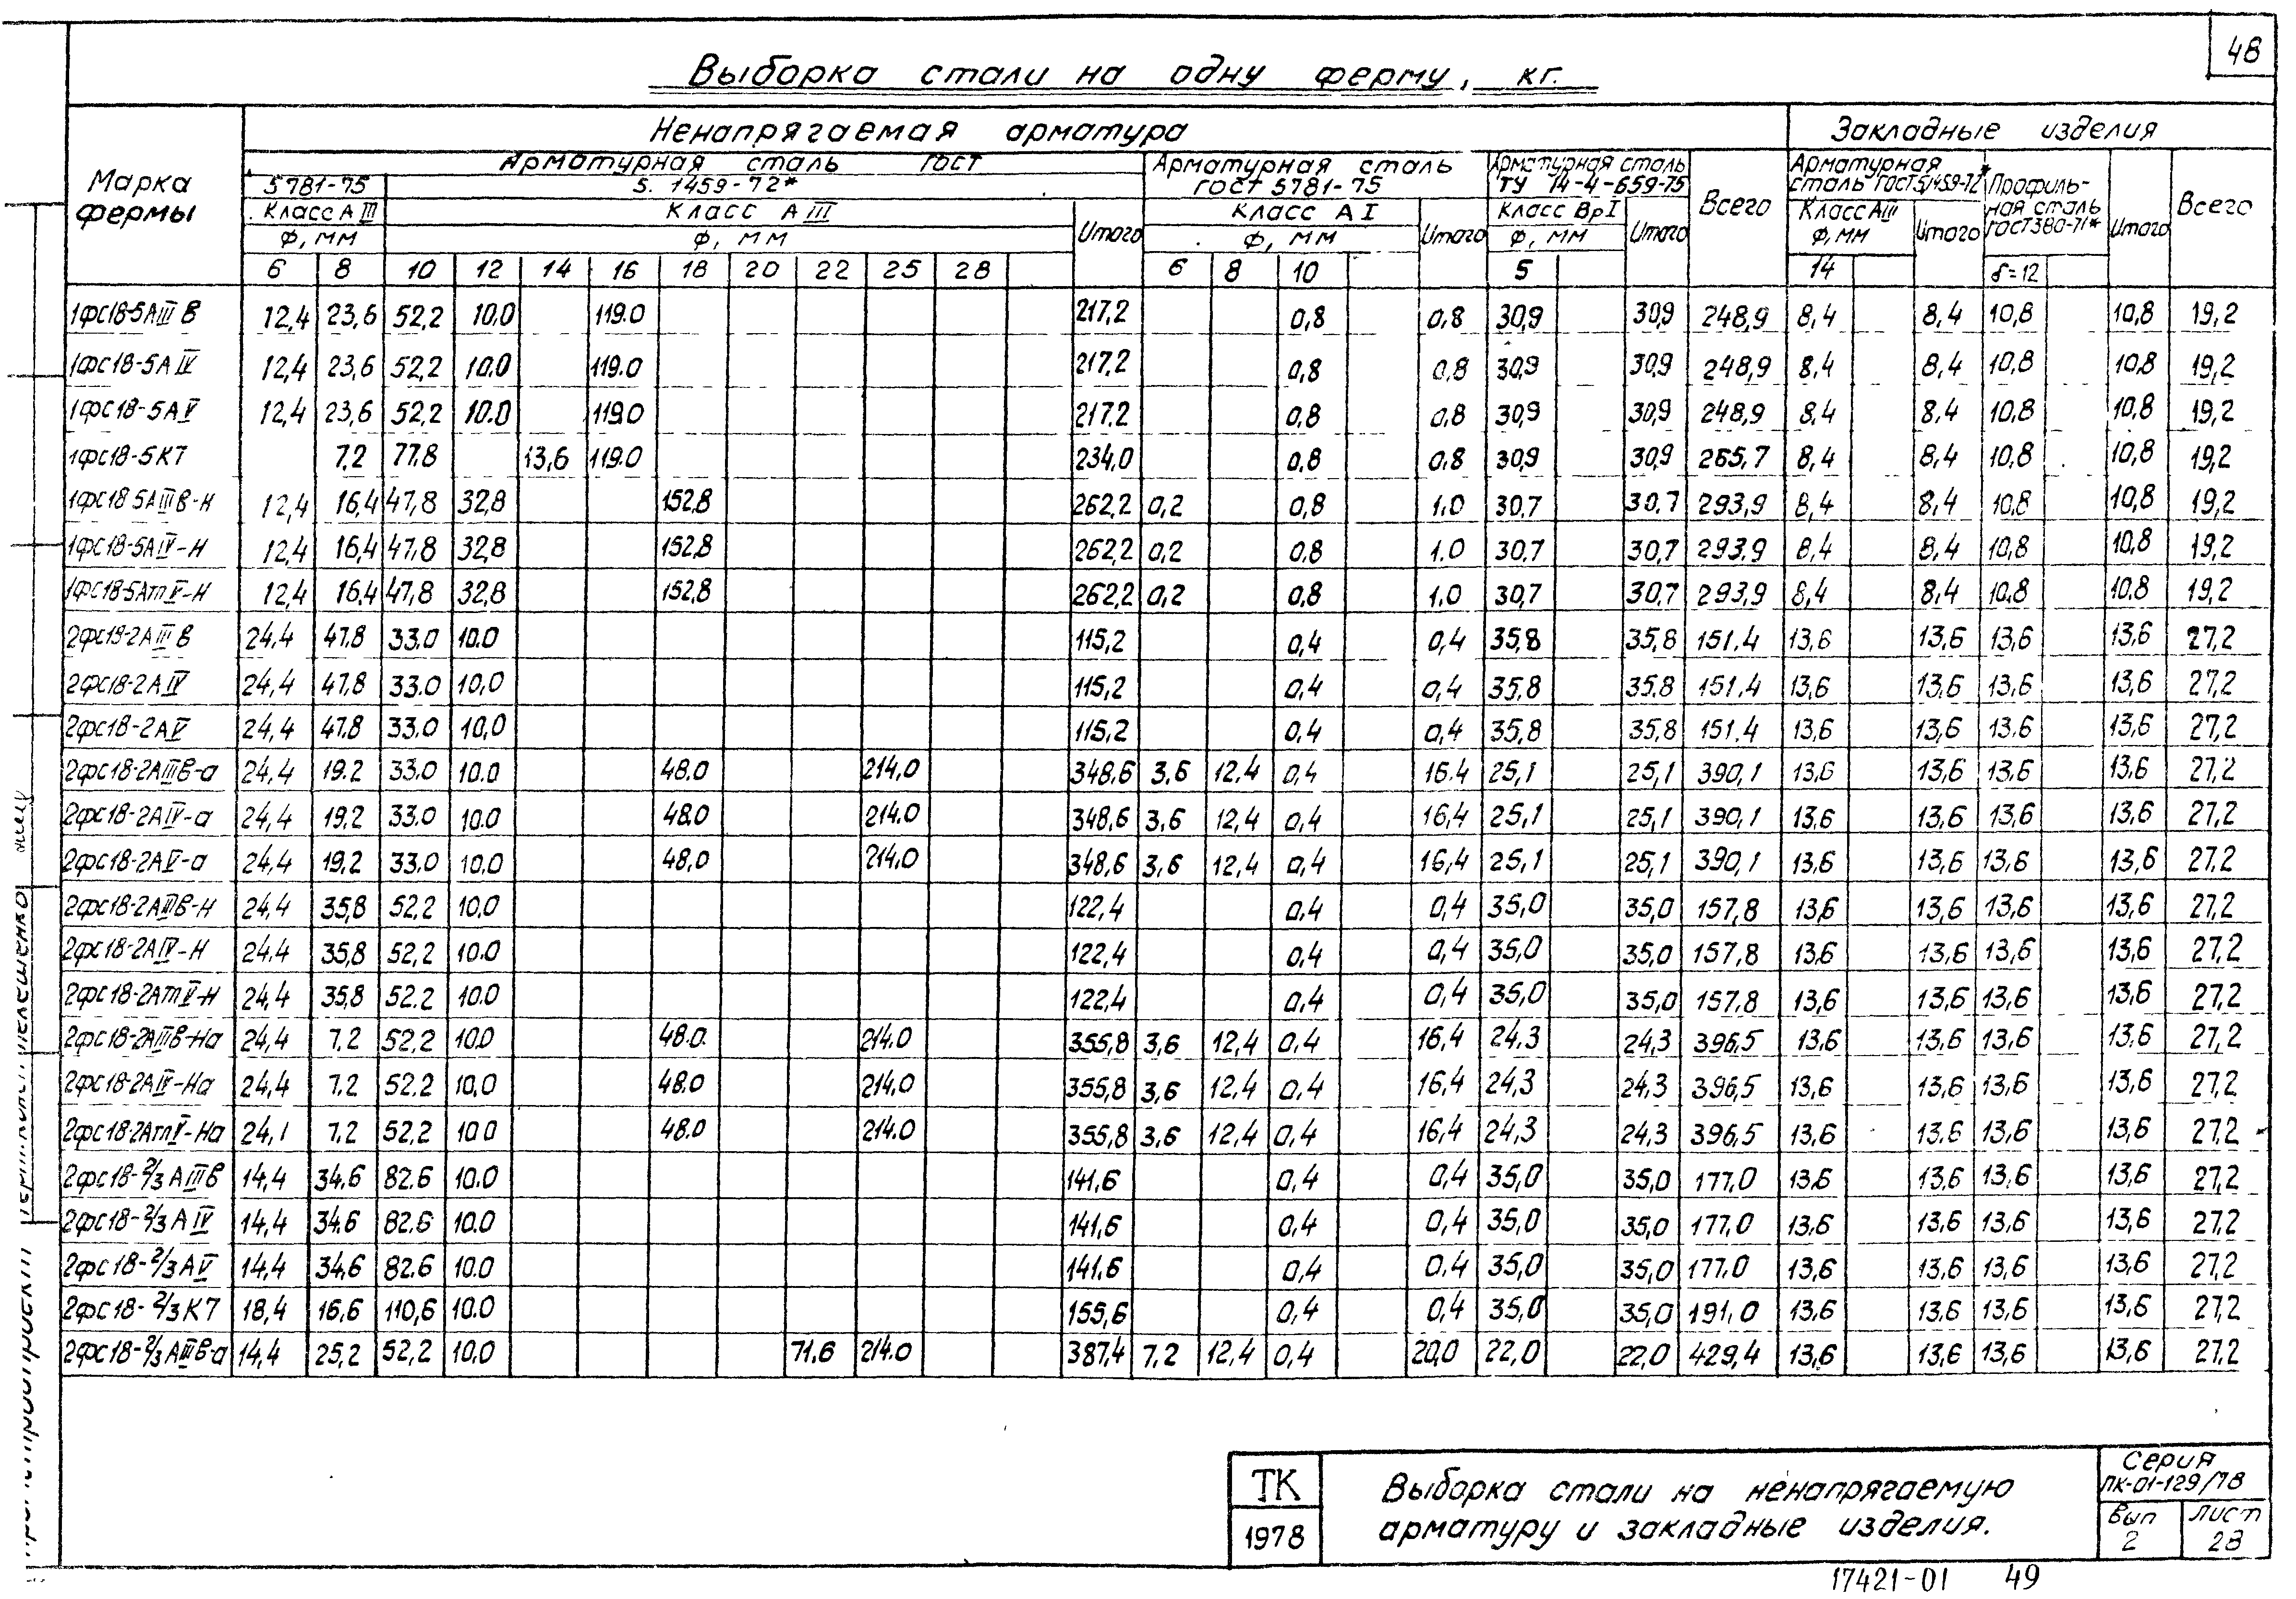 48
Выборка стали на одну ферму, кг.
Марка фермы
Ненапрягаемая арматура
Закладные изделия
Арматурная сталь ГОСТ
5781-75
5.1459-72*
Арматурная сталь ГОСТ 5781-75
Арматурная сталь ТУ 14-4-659-75
Всего
Арматурная сталь ГОСТ5.1459-72*
Профильная сталь ГОСТ380-71*
Итого
Всего
Класс А III
Класс А III
Итого
Класс А I
Итого
Класс Вр I
Итого
Класс АIII
Итого
Ф, мм
Ф, мм
Ф, мм
Ф, мм
Ф, мм
6 8 10 12 14 16 18 20 22 25 28 6 8 10 5 14 δ=12
1ФС18-5АIIIв 12,4 23,6 52,2 10,0 119.0 217,2 0,8 0,8 30,9 30,9 248,9 8,4 8,4 10,8 10,8 19,2
1ФС18-5АIV 12,4 23,6 52,2 10.0 119.0 217.2 0,8 0,8 30,9 30,9 248,9 8,4 8,4 10,8 10,8 19,2
1ФС18-5АV 12,4 23,6 52,2 10.0 119.0 217.2 0,8 0,8 30,9 30,9 248,9 8,4 8,4 10,8 10,8 19,2
1ФС18-5К7 7.2 77.8 13,6 119.0 234,0 0,8 0,8 30,9 30,9 265,7 8,4 8,4 10,8 10,8 19,2
1ФС18 5АIIIв-Н 12,4 16,4 47,8 32,8 152,8 262,2 0,2 0,8 1.0 30,7 30,7 293,9 8,4 8,4 10,8 10,8 19,2
1ФС18-5АIV-Н 12,4 16,4 47,8 32,8 152,8 262,2 0,2 0,8 1.0 30,7 30,7 293,9 8,4 8,4 10,8 10,8 19,2
1ФС18-5АтV-Н 12,4 16,4 47,8 32,8 152,8 262,2 0,2 0,8 1,0 30,7 30,7 293,9 8,4 8,4 10,8 10.8 19,2
2ФС18-2АIIIв 24,4 47,8 33.0 10.0 115,2 0,4 0,4 35,8 35,8 151.4 13,6 13,6 13,6 13,6 27,2
2ФС18-2АIV 24,4 47,8 33.0 10,0 115,2 0,4 0,4 35,8 35,8 151.4 13,6 13,6 13,6 13,6 27,2
2ФС18-2АV 24,4 47,8 33.0 10,0 115,2 0,4 0,4 35,8 35,8 151.4 13,6 13,6 13,6 13,6 27,2
2ФС18-2АIIIв-а 24,4 19.2 33.0 10.0 48.0 214,0 348,6 3,6 12,4 0,4 16.4 25,1 25,1 390,1 13,6 13,6 13,6 13,6 27,2
2ФС18-2АIV-а 24,4 19,2 33.0 10.0 48.0 214.0 348,6 3,6 12,4 0,4 16,4 25,1 25,1 390,1 13,6 13,6 13,6 13,6 27,2
2ФС18-2АV-а 24,4 19,2 33.0 10,0 48,0 214.0 348,6 3,6 12,4 0,4 16,4 25,1 25,1 390,1 13,6 13,6 13,6 13,6 27,2
2ФС18-2АIIIв-Н 24,4 35,8 52,2 10,0 122,4 0,4 0,4 35,0 35,0 157,8 13,6 13,6 13,6 13,6 27,2
2ФС18-2АIV-Н 24,4 35,8 52,2 10.0 122,4 0,4 0,4 35,0 35,0 157,8 13,6 13,6 13,6 13,6 27,2
2ФС18-2АтV-Н 24,4 35,8 52.2 10.0 122,4 0,4 0,4 35,0 35,0 157,8 13,6 13,6 13,6 13,6 27,2
2ФС18-2АIIIв-На 24,4 7.2 52.2 10.0 48.0 214.0 355,8 3,6 12,4 0.4 16,4 24,3 24,3 396,5 13,6 13,6 13,6 13,6 27,2
2ФС18-2АIV-На 24,4 7.2 52.2 10,0 48.0 214.0 355,8 3,6 12,4 0,4 16,4 24,3 24,3 396,5 13,6 13,6 13,6 13,6 27,2
2ФС18-2АтV-На 24,1 7.2 52,2 10 0 48.0 214.0 355,8 3,6 12,4 0,4 16,4 24,3 24,3 396,5 13,6 13,6 13,6 13,6 27,2
2ФС18-2/3 АIIIв 14,4 34,6 82.6 10.0 141,6 0,4 0,4 35,0 35,0 177,0 13,6 13,6 13,6 13,6 27,2
2ФС18-2/3 АIV 14,4 34,6 82.6 10.0 141,6 0,4 0,4 35,0 35,0 177,0 13,6 13,6 13,6 13,6 27,2
2ФС18-2/3 АV 14,4 34,6 82.6 10.0 141.6 0,4 0,4 35,0 35,0 177.0 13,6 13,6 13,6 13,6 27,2
2ФС18-2/3 К7 18,4 16,6 110,6 10.0 155,6 0,4 0,4 35,0 35,0 191,0 13,6 13,6 13,6 13,6 27,2
2ФС18-2/3 АIIIв-а 14,4 25,2 52,2 10,0 71.6 214.0 387,4 7,2 12,4 0,4 20,0 22,0 22,0 429,4 13,6 13,6 13,6 13,6 27,2
ТК
1978
Выборка стали на ненапрягаемую
арматуру и закладные изделия.
Серия
ПК-01-129/78
Вып 2
Лист 28
17421-01 49